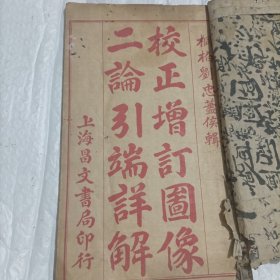 劉忠
校正增訂圖像
二論引端詳解
上海昌文書局印行